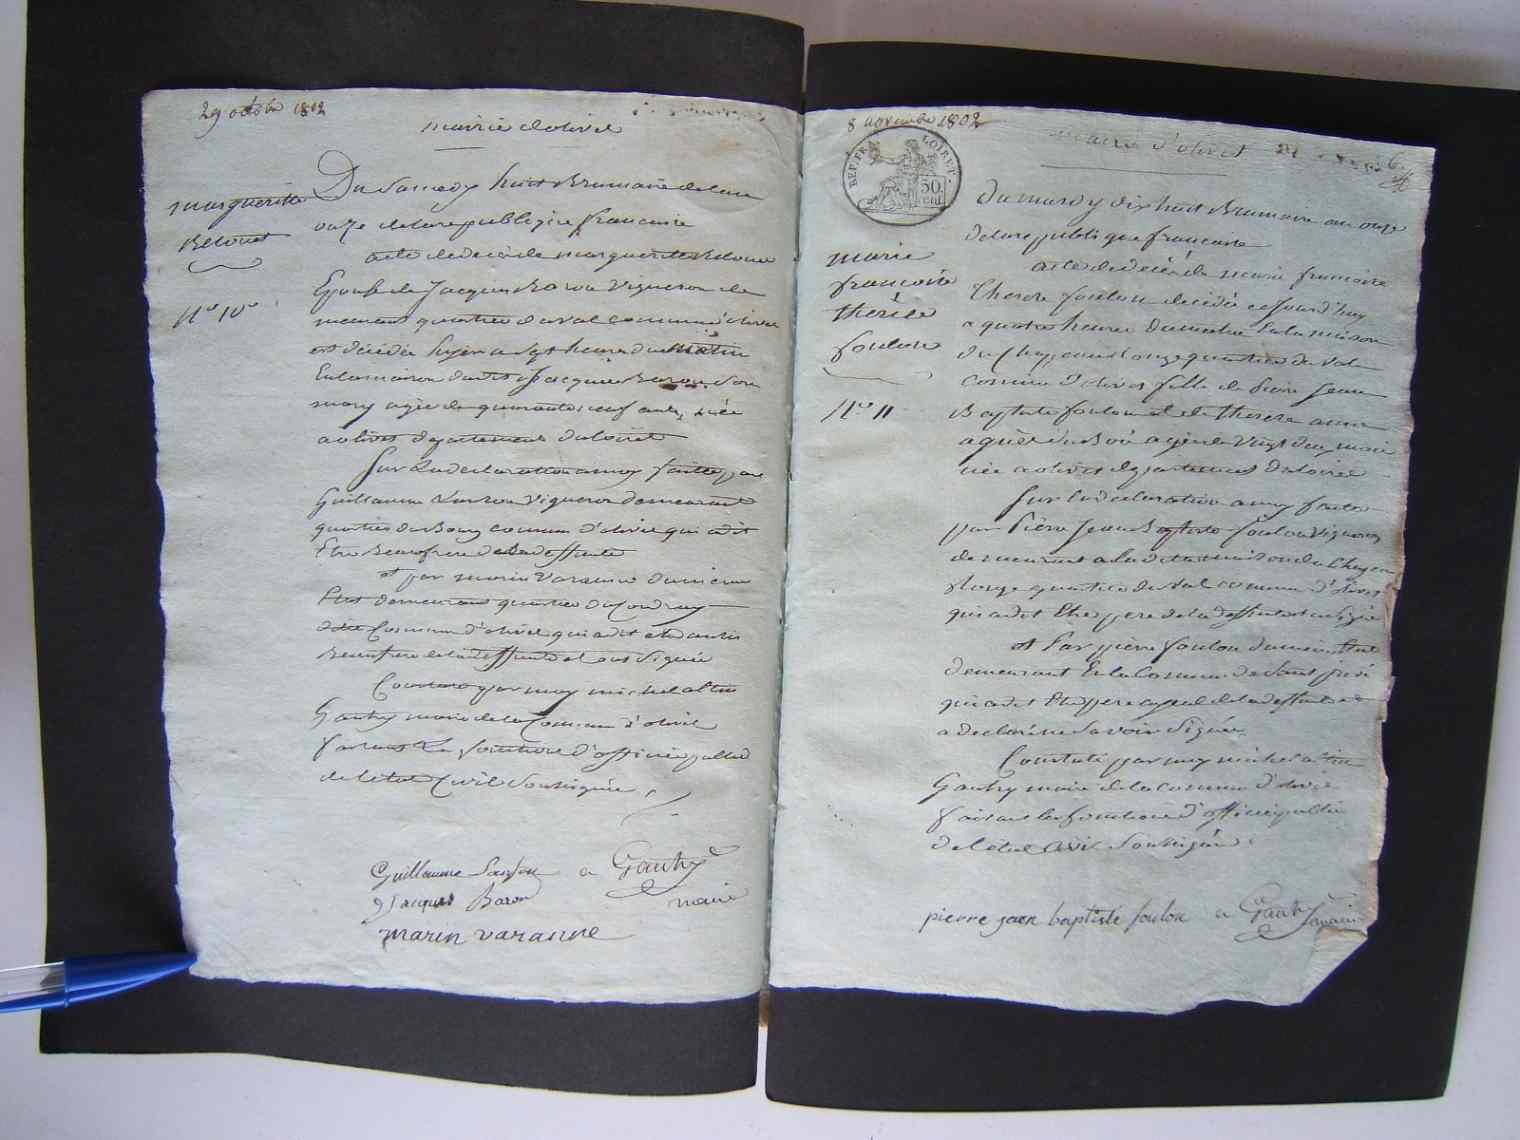 29 octobre 1802
mairie dolivet
marguerite
Belouet
N° 10
Du Samedy huit Brumaire de lan
onze delarepublique francaise
acte dedécès de marguerite Beloue
Epouse de Jacques Baron Vigneron de
meurant quartier duval Commune dolivet
est décédée hyer a Sept heures du matin
En la maison dudit Jacques Baron Son
mary agée de quarante neuf ans, née
aolivet departement duloiret
Sur Ladeclaration amoy faitte par
Guillaume Sanson Vigneron demeurant
quartier du Bourg Commune d'olivet qui adit
Etre Beaufrere dela deffunte
et par marin Varanne dumeme
Etat demeurant quartier du
dite Commune d'olivet qui adit etre aussi
Beaufrere dela deffunte et ont Signée
Constaté par moy michel
Gautry maire de la Commune d'olivet
faisant Les fonctions d'officier public
de letat Civil Soussigné
Guillaume Sanson a Gautry
Jacques Baron maire
marin varanne
8 novembre 1802
REP. FRA. LOIRET.
50 cent
mairie d'olivet
marie
francoise
therèse
foulon
N° 11
du mardy dix huit Brumaire an onze
delarepublique francaise
acte dedecès de marie francoise
therese foulon decedée cejourd'huy
a quatre heures dumatin En la maison
du quartier du Val
Commune d'olivet fille de pierre Jean
Baptiste foulon et de therese anne
agée de Vingt deux mois
née aolivet departement duloiret
Sur la declaration amoy faitte
par Pierre Jean Baptiste foulon Vigneron
demeurant a la ditte maison du
quartier du Val commune d'olivet
qui adit Etre pere de la deffunte
et Par pierre foulon dumeme Etat
demeurant En la Commune de Saint
qui adit Etre de la deffunte et
a declaré ne Savoir Signer
Constaté par moy michel
Gautry maire de la Commune d'olivet
faisant les fonctions d'officier public
de l'état Civil Soussigné
pierre jaen baptiste foulon a Gautry maire